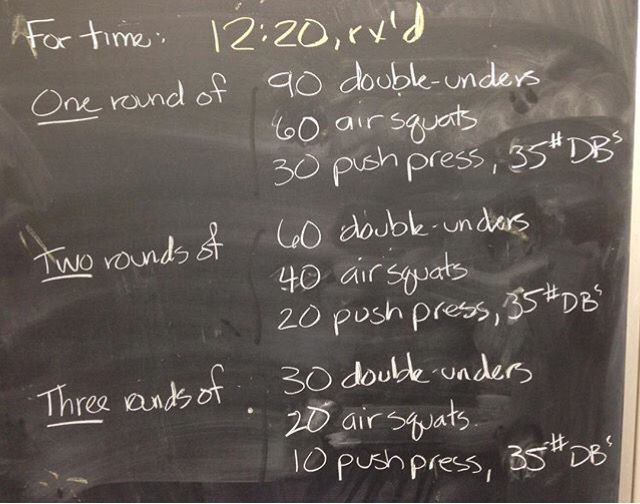 For time: 12:20, rx'd
One round of 90 double-unders
60 air squats
30 push press, 35# DBs
Two rounds of 60 double-unders
40 air squats
20 push press, 35# DBs
Three rounds of 30 double-unders
20 air squats
10 push press, 35# DBs